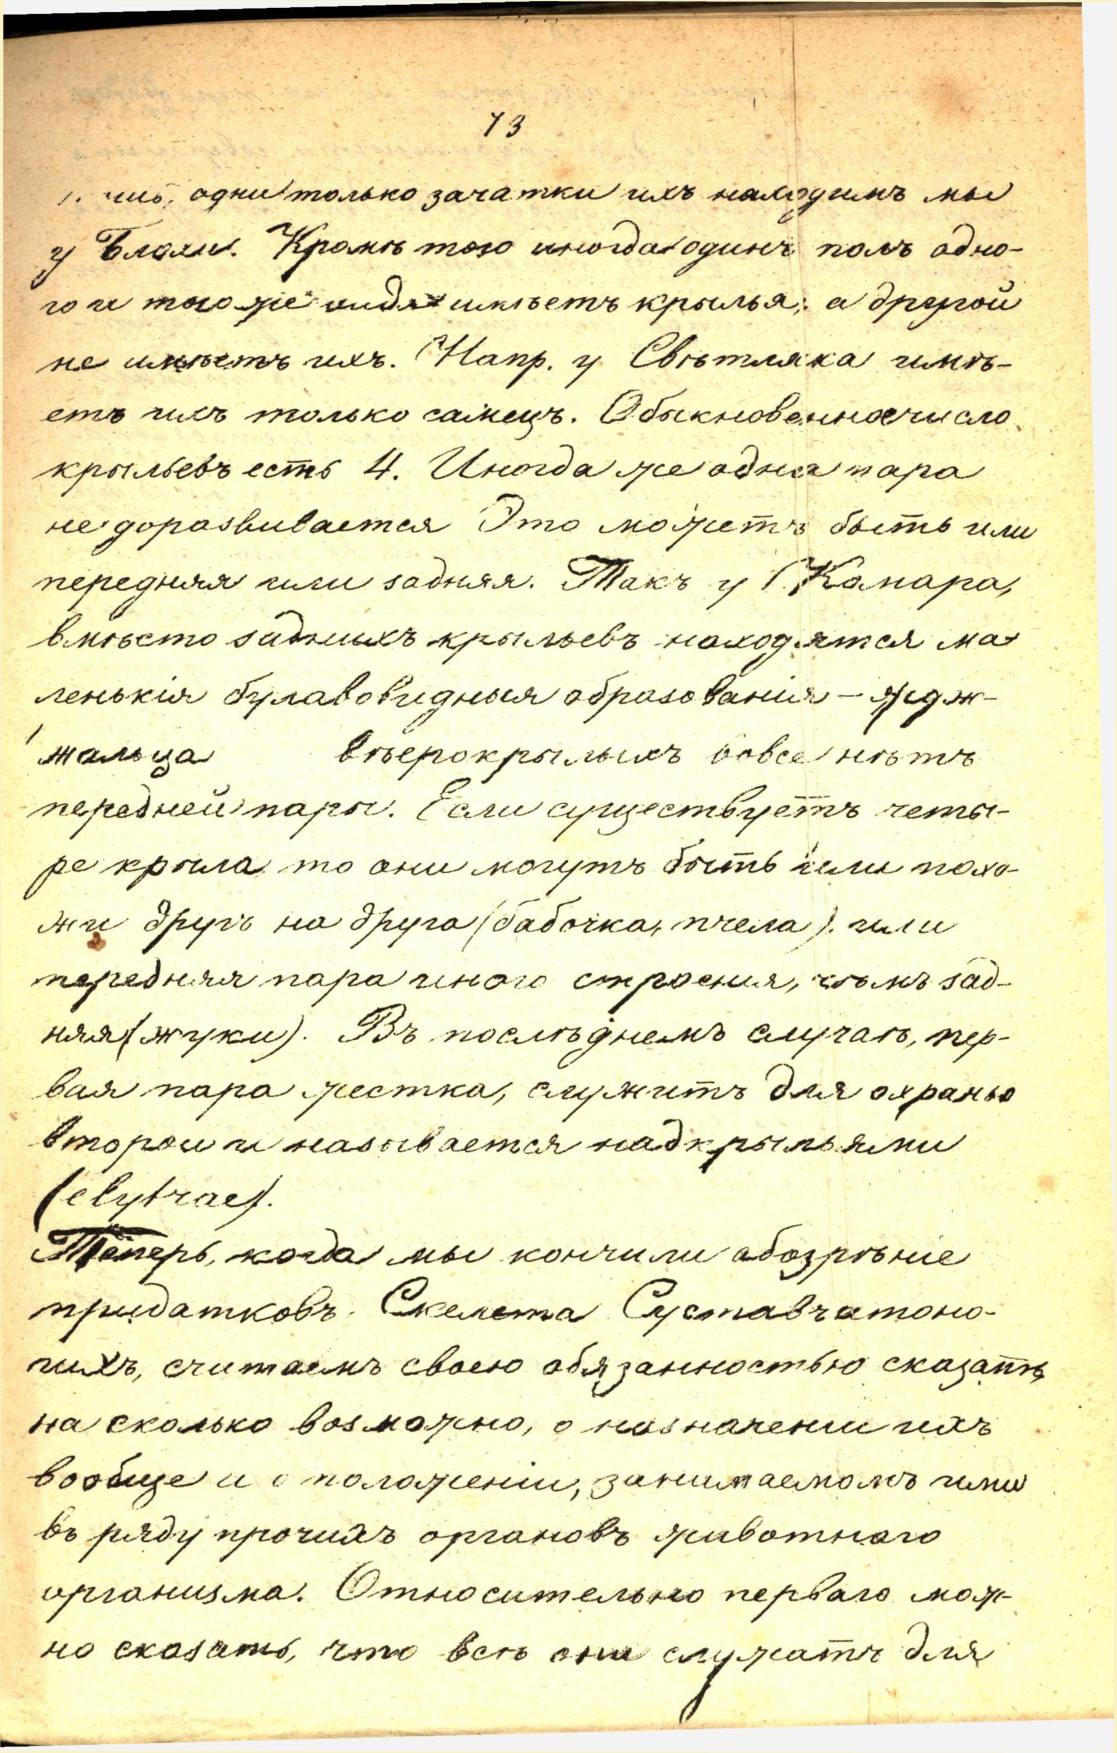 73
одни только зачатки ихъ находимъ мы
у Блохи. Кромѣ того иногда одинъ полъ одно-
го и того же вида имѣетъ крылья, а другой
не имѣетъ ихъ. Напр. у Свѣтляка имѣ-
етъ ихъ только самецъ. Обыкновенное число
крыльевъ есть 4. Иногда же одна пара
не доразвивается Это можетъ быть или
передняя или задняя. Такъ у Комара,
вмѣсто заднихъ крыльевъ находятся ма
ленькія булавовидныя образованія –
жальца вѣерокрылыхъ вовсе нѣтъ
передней пары. Если существуетъ четы-
ре крыла то они могутъ быть или похо-
жи другъ на друга (бабочка, пчела). или
передняя пара иного строения, чѣмъ зад-
няя (жуки). Въ послѣднемъ случаѣ, пер-
вая пара жестка, служитъ для охраны
второи и называется надкрыльями
(elytrae).
Теперь, когда мы кончили обозрѣніе
придатковъ Скелета Суставчатоно-
гихъ, считаемъ своею обязанностью сказать,
на сколько возможно, о назначении ихъ
вообще и о положеніи, занимаемомъ ими
въ ряду прочихъ органовъ животнаго
организма. Относительно перваго мож-
но сказать, что всѣ они служатъ для